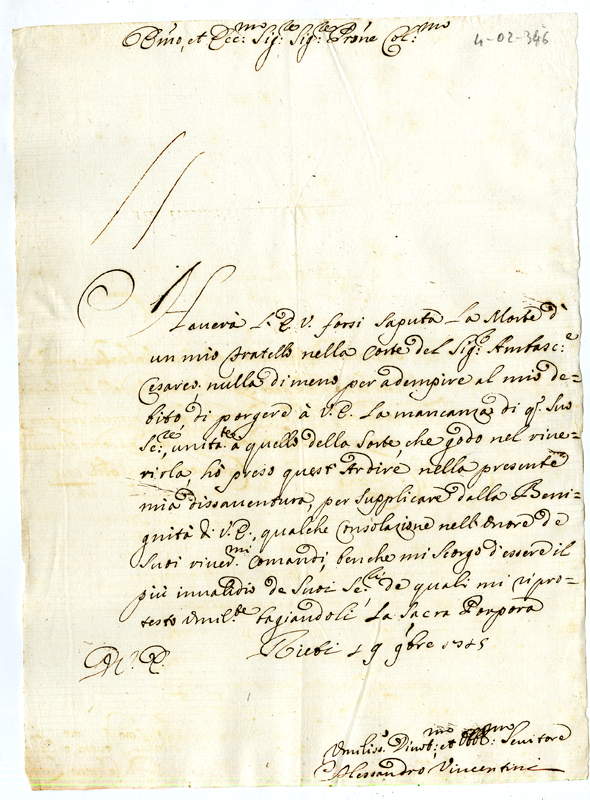 Emo, et Ecc:mo Sig:re Sig:re Prone Col:mo
4-02-346
Hauerà L'E. V. forsi saputa La Morte d'
un mio fratello nella Corte del Sig:r Ambasc:e
Cesareo, nulladimeno per adempire al mio de-
bito, di porgere à V. E. La mancanza di q:o Suo
Se:re, unita:te à quello della Sorte, che godo nel rive-
rirla, hò preso quest'Ardire nella presente
mia disauentura, per supplicare dalla Beni-
gnità di V. E., qualche Consolazione nell'Onore de
Suoi riuer:mi Comandi, benche mi scorgo d'essere il
più inualido de Suoi Se:ri, de quali mi ripro-
testo Vmil:te baciandoli La Sacra Porpora
Rieti 9 9bre 1745
D. V. E.
Vmiliss:o Diuot:mo et Obbl:mo Seruitore
Alessandro Vincentini